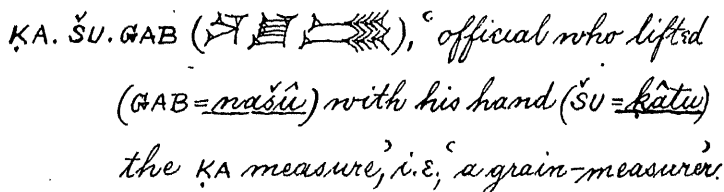 ḲA. ŠU. GAB ( ), ‘official who lifted
(GAB = našû) with his hand (ŠU = ḳâtu)
the ḲA measure,’ i.e., ‘a grain-measurer.’